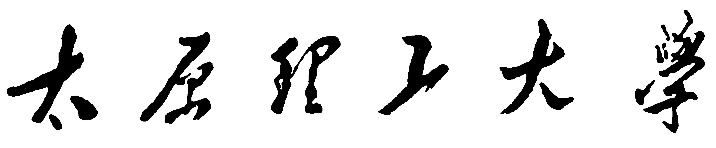 太原理工大學